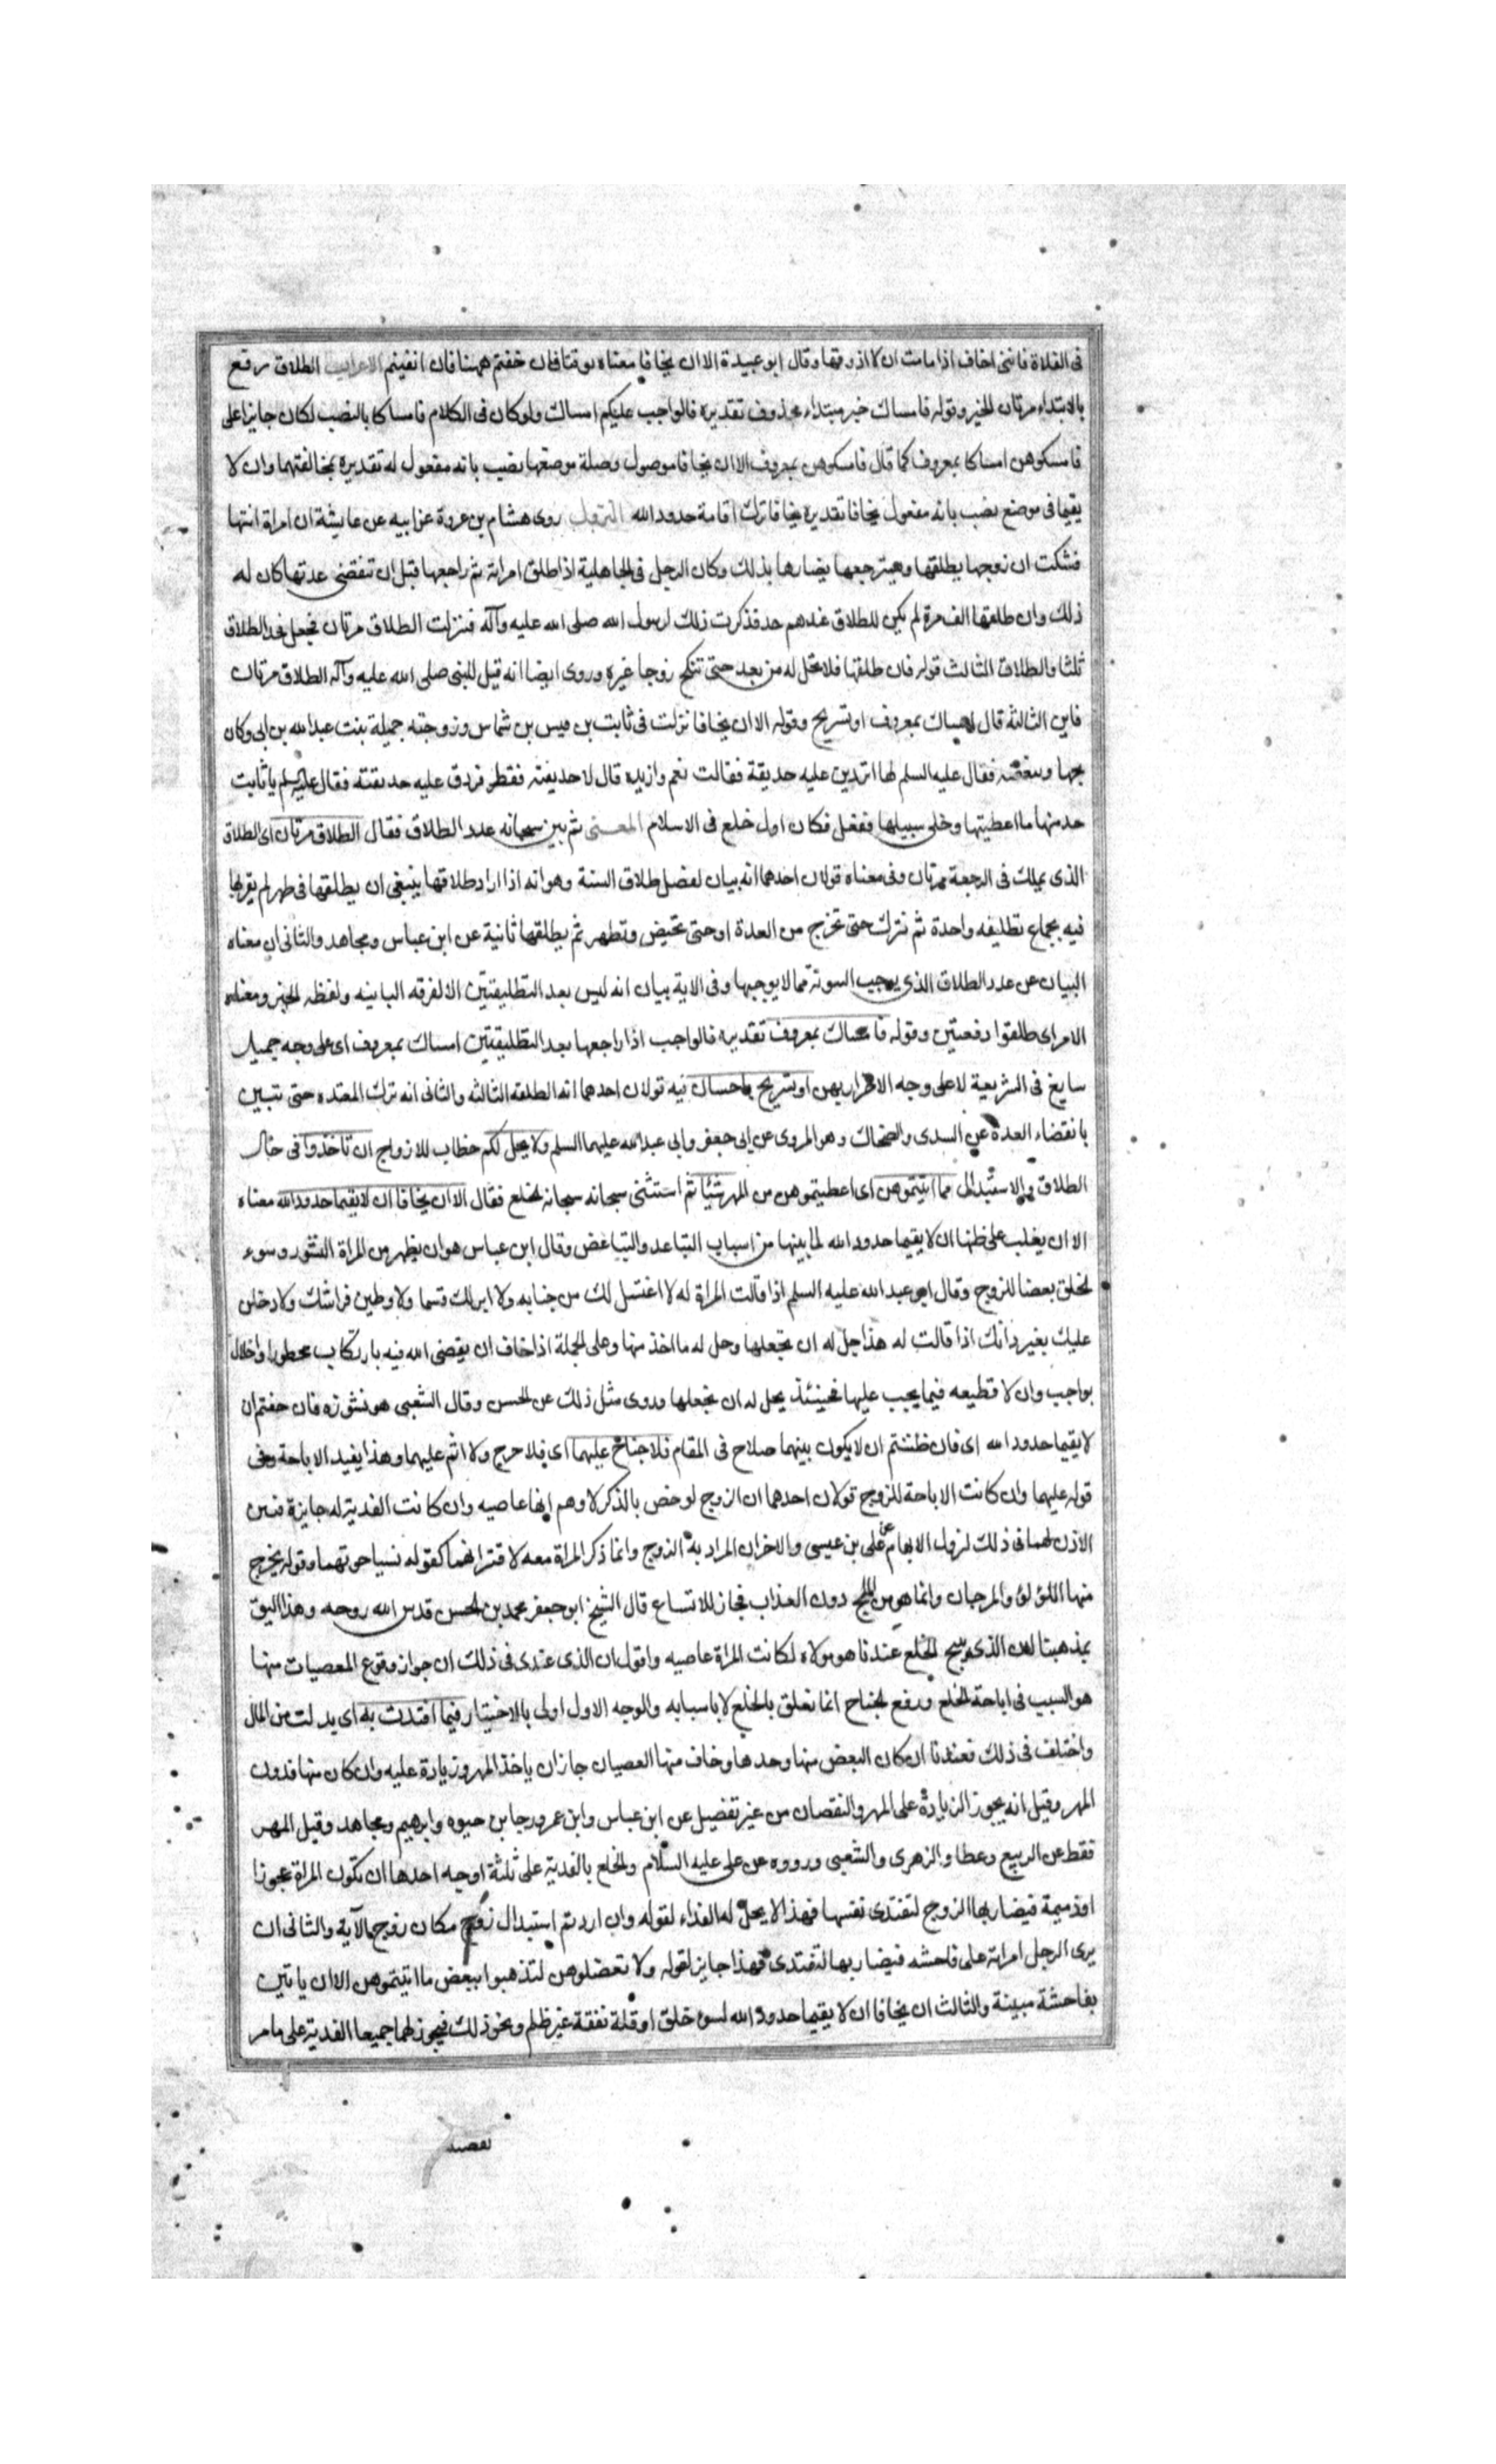 فى الفلاة فاننى اخاف اذا مامت ان لا اذوقها وقال ابو عبيدة الا ان يخافا معناه يوقنا فان خفتم ههنا فان ايقنتم الاعراب الطلاق رفع
بالابتداء مرتان الخبر وقوله فامساك خبر مبتداء محذوف تقديره فالواجب عليكم امساك ولو كان فى الكلام فامساكا بالنصب لكان جايزا على
فامسكوهن امساكا بمعروف كما قال فامسكوهن بمعروف الا ان يخافا موصول وصلة موضعها نصب بانه مفعول له تقديره بمخافتهما وان لا
يقيما فى موضع نصب بانه مفعول يخافا تقديره يخافا ترك اقامة حدود الله النزول روى هشام بن عروة عن ابيه عن عايشة ان امراة اتتها
فشكت ان زوجها يطلقها ويسترجعها يضارها بذلك وكان الرجل فى الجاهلية اذا طلق امراته ثم راجعها قبل ان تنقضى عدتها كان له
ذلك وان طلقها الف مرة لم يكن للطلاق عندهم حد فذكرت ذلك لرسول الله صلى الله عليه وآله فنزلت الطلاق مرتان فجعل حد الطلاق
ثلثا والطلاق الثالث قوله فان طلقها فلا تحل له من بعد حتى تنكح زوجا غيره وروى ايضا انه قيل للنبى صلى الله عليه وآله الطلاق مرتان
فاين الثالثة قال امساك بمعروف او تسريح وقوله الا ان يخافا نزلت فى ثابت بن قيس بن شماس وزوجته جميلة بنت عبدالله بن ابى وكان
يحبها وتبغضه فقال عليه السلم لها اتردين عليه حديقة فقالت نعم وازيده قال لا حديقته فقط فردت عليه حديقته فقال عليه السلم يا ثابت
خذ منها ما اعطيتها وخلى سبيلها ففعل فكان اول خلع فى الاسلام المعنى ثم بين سبحانه عدد الطلاق فقال الطلاق مرتان اى الطلاق
الذى يملك فى الرجعة مرتان وفى معناه قولان احدهما انه بيان لفضل طلاق السنة وهو انه اذا اراد طلاقها ينبغى ان يطلقها فى طهر لم يقربها
فيه بجماع تطليقه واحدة ثم تترك حتى تخرج من العدة او حتى تحيض وتطهر ثم يطلقها ثانية عن ابن عباس ومجاهد والثانى ان معناه
البيان عن عدد الطلاق الذى يوجب البينونة مما لا يوجبها وفى الاية بيان انه ليس بعد التطليقتين الا الفرقه الباينه ولفظه الخبر ومعناه
الامر اى طلقوا دفعتين وقوله فامساك بمعروف تقديره فالواجب اذا راجعها بعد التطليقتين امساك بمعروف اى على وجه جميل
سايغ فى الشريعة لا على وجه الاضرار بهن او تسريح باحسان فيه قولان احدهما انه الطلقه الثالثه والثانى انه ترك المعتده حتى تبين
بانقضاء العدة عن السدى والضحاك وهو المروى عن ابى جعفر وابى عبدالله عليهما السلم ولا يحل لكم خطاب للازواج ان تاخذوا فى حال
الطلاق والاستبدال مما اتيتموهن اى اعطيتموهن من المهر شيئا ثم استثنى سبحانه سبحانه الخلع فقال الا ان يخافا ان لا يقيما حدود الله معناه
الا ان يغلب على ظنها ان لا يقيما حدود الله لما بينها من اسباب التباعد والتباغض وقال ابن عباس هو ان يظهر من المراة النشوز وسوء
الخلق بغضا للزوج وقال ابو عبدالله عليه السلم اذا قالت المراة له لا اغتسل لك من جنابه ولا ابر لك قسما ولاوطين فراشك ولادخلن
عليك بغير اذنك اذا قالت له هذا حل له ان يخلعها وحل له ما اخذ منها وعلى الجملة اذا خاف ان يعصى الله فيه بارتكاب محظور او اخلال
بواجب وان لا تطيعه فيما يجب عليها فحينئذ يحل له ان يخلعها وروى مثل ذلك عن الحسن وقال الشعبى هو نشوزه فان خفتم ان
لا يقيما حدود الله اى فان ظننتم ان لا يكون بينهما صلاح فى المقام فلا جناح عليهما اى فلا حرج ولا اثم عليهما وهذا يفيد الاباحة وفى
قوله عليهما وان كانت الاباحة للزوج قولان احدهما ان الزوج لو خص بالذكر لاوهم انها عاصيه وان كانت الفدية له جايزة فبين
الاذن لهما فى ذلك لزول الابهام عن على بن عيسى والاخر ان المراد به الزوج وانما ذكر المراة معه لاقترانهما كقوله نسيا حوتهما وقوله يخرج
منها اللؤلؤ والمرجان وانما هو من الملح دون العذاب فجاز للاتساع قال الشيخ ابو جعفر محمد بن الحسن قدس الله روحه وهذا اليق
بمذهبنا لان الذى يبيح الخلع عندنا هو لولاه لكانت المراة عاصيه واقول ان الذى عندى فى ذلك ان جواز وقوع المعصيات منها
هو السبب فى اباحة الخلع ورفع الجناح انما تعلق بالخلع لا باسبابه والوجه الاول اولى بالاختيار فيما افتدت به اى بدلت من المال
واختلف فى ذلك فعندنا ان كان البغض منها وحدها وخاف منها العصيان جاز ان ياخذ المهر وزيادة عليه وان كان منها فدون
المهر وقيل انه يجوز الزيادة على المهر والنقصان من غير تفضيل عن ابن عباس وابن عمر ورجا بن حيوه وابرهيم ومجاهد وقيل المهر
فقط عن الربيع وعطا والزهرى والشعبى ورووه عن على عليه السلام والخلع بالفدية على ثلثة اوجه احدها ان تكون المراة عجوزا
او ذميمة فيضاربها الزوج لتفتدى نفسها فهذا لا يحل له الفداء لقوله وان اردتم استبدال زوج مكان زوج الآية والثانى ان
يرى الرجل امراته على فاحشه فيضاربها لتفتدى فهذا جايز لقوله ولا تعضلوهن لتذهبوا ببعض ما اتيتموهن الا ان ياتين
بفاحشة مبينة والثالث ان يخافا ان لا يقيما حدود الله لسوء خلق او قلة نفقة من غير ظلم ونحو ذلك فيجوز لهما جميعا الفدية على ما مر